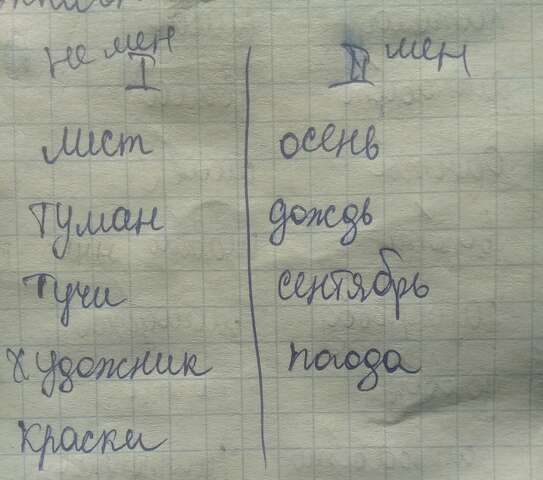 не мен мен
I II
лист осень
туман дождь
тучи сентябрь
художник погода
краски